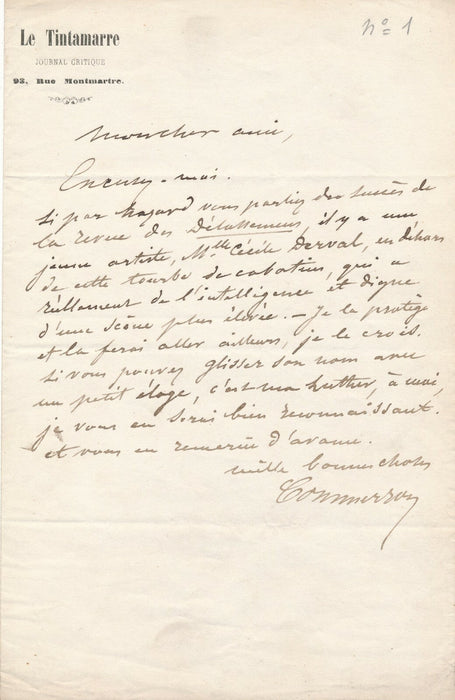 Le Tintamarre
JOURNAL CRITIQUE
93, Rue Montmartre.
N° 1
Mon cher ami,
Excusez-moi.
Si par hazard vous parliez du succès de
la revue des Délassemens, il y a une
jeune artiste, Mlle Cécile Derval, en dehors
de cette tourbe de cabotins, qui a
réellement de l'intelligence et digne
d'une scène plus élevée. — Je la protège
et la ferai aller ailleurs, je le crois.
Si vous pouvez glisser son nom avec
un petit éloge, c'est ma Luther, à moi,
je vous en serai bien reconnaissant.
et vous en remercie d'avance.
mille bonnes choses
Commerson